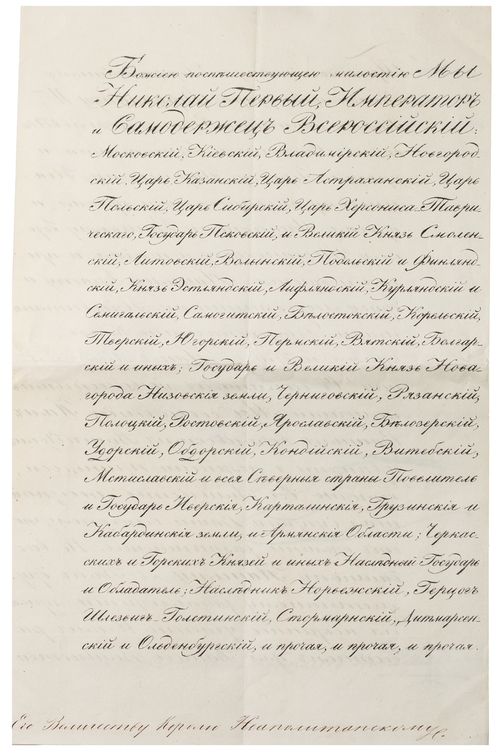 Божіею поспѣшествующею милостію МЫ
Николай Первый, Императоръ
и Самодержецъ Всероссійскій:
Московскій, Кіевскій, Владимірскій, Новгород-
скій, Царь Казанскій, Царь Астраханскій, Царь
Польскій, Царь Сибирскій, Царь Херсониса-Таври-
ческаго, Государь Псковскій, и Великій Князь Смолен-
скій, Литовскій, Волынскій, Подольскій и Финлянд-
скій, Князь Эстляндскій, Лифляндскій, Курляндскій и
Семигальскій, Самогитскій, Бѣлостокскій, Корельскій,
Тверскій, Югорскій, Пермскій, Вятскій, Болгар-
скій и иныхъ; Государь и Великій Князь Нова-
города Низовскія земли, Черниговскій, Рязанскій,
Полоцкій, Ростовскій, Ярославскій, Бѣлозерскій,
Удорскій, Обдорскій, Кондійскій, Витебскій,
Мстиславскій и всея Сѣверныя страны Повелитель
и Государь Иверскія, Карталинскія, Грузинскія и
Кабардинскія земли, и Армянскія Области; Черкас-
скихъ и Горскихъ Князей и иныхъ Наслѣдный Государь
и Обладатель; Наслѣдникъ Норвежскій, Герцогъ
Шлезвигъ-Голстинскій, Стормарнскій, Дитмарсен-
скій и Ольденбургскій, и прочая, и прочая, и прочая.
Его Величеству Королю Неаполитанскому